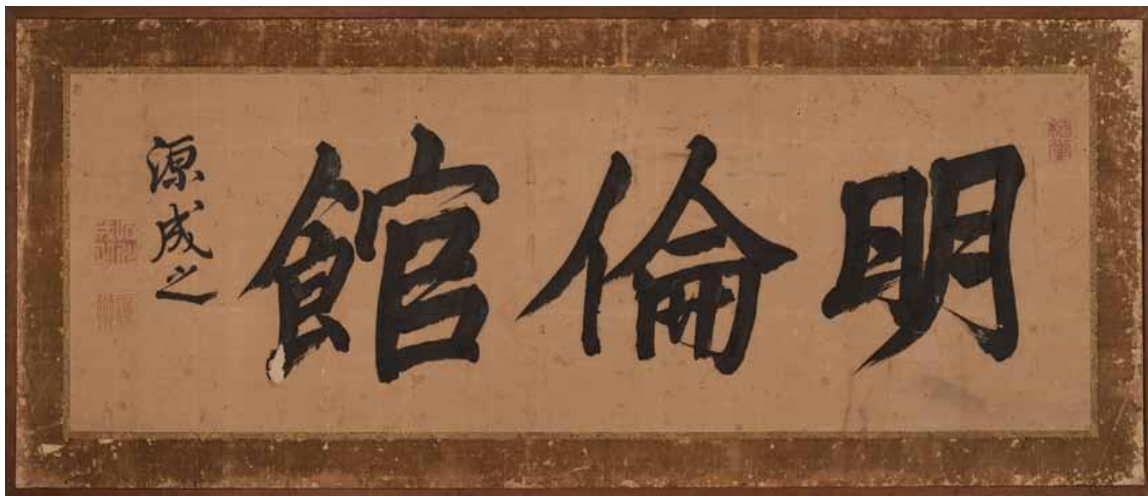 明倫館
源成之